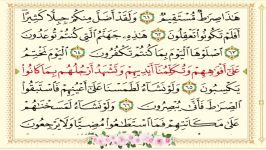 هَٰذَا صِرَٰطٌ مُّسْتَقِيمٌ ۝٦١ وَلَقَدْ أَضَلَّ مِنكُمْ جِبِلًّا كَثِيرًا
أَفَلَمْ تَكُونُوا۟ تَعْقِلُونَ ۝٦٢ هَٰذِهِۦ جَهَنَّمُ ٱلَّتِى كُنتُمْ تُوعَدُونَ
۝٦٣ ٱصْلَوْهَا ٱلْيَوْمَ بِمَا كُنتُمْ تَكْفُرُونَ ۝٦٤ ٱلْيَوْمَ نَخْتِمُ
عَلَىٰٓ أَفْوَٰهِهِمْ وَتُكَلِّمُنَآ أَيْدِيهِمْ وَتَشْهَدُ أَرْجُلُهُم بِمَا كَانُوا۟
يَكْسِبُونَ ۝٦٥ وَلَوْ نَشَآءُ لَطَمَسْنَا عَلَىٰٓ أَعْيُنِهِمْ فَٱسْتَبَقُوا۟
ٱلصِّرَٰطَ فَأَنَّىٰ يُبْصِرُونَ ۝٦٦ وَلَوْ نَشَآءُ لَمَسَخْنَٰهُمْ
عَلَىٰ مَكَانَتِهِمْ فَمَا ٱسْتَطَٰعُوا۟ مُضِيًّا وَلَا يَرْجِعُونَ